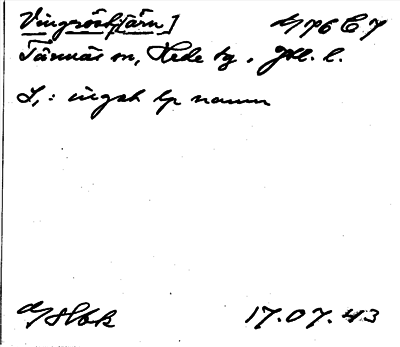 Vingsöstjärn]
Tännäs sn, Hede tg, Jtl. l.
L,: inget lp namn
17.07.43